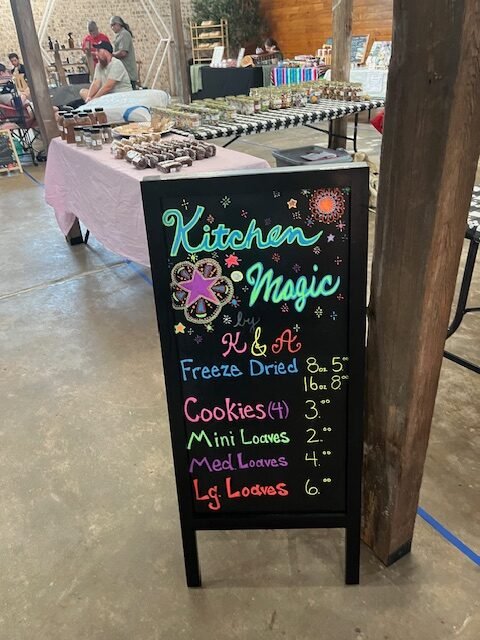 Kitchen
Magic
by
K & A
Freeze Dried 8oz 5.00
16oz 8.00
Cookies (4) 3.00
Mini Loaves 2.00
Med. Loaves 4.00
Lg. Loaves 6.00